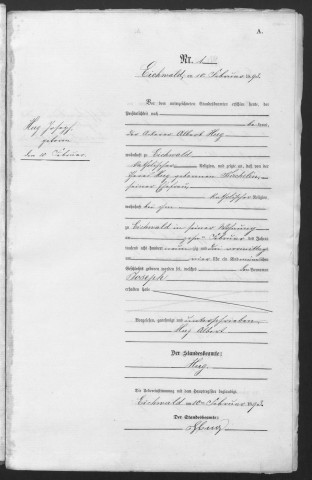 A.
Nr. 1
Eichwald, am 10. Februar 189
Hug Joseph
geboren
den 10. Februar
Vor dem unterzeichneten Standesbeamten erschien heute, der
Persönlichkeit nach
be kannt,
der Ackerer Albert Hug
wohnhaft zu Eichwald
katholischer Religion, und zeigte an, daß von der
geborenen
seiner Ehefrau
katholischer Religion,
wohnhaft bei ihm
zu Eichwald in seiner Wohnung
am zehnten Februar des Jahres
tausend acht hundert neunzig und vormittags
um vier Uhr ein Kind männlichen
Geschlechts geboren worden sei, welches den Vornamen
Joseph
erhalten habe
Vorgelesen, genehmigt und unterschrieben
Hug Albert
Der Standesbeamte:
Hug
Die Uebereinstimmung mit dem Hauptregister beglaubigt.
Eichwald, am 10. Februar 189
Der Standesbeamte:
Hug